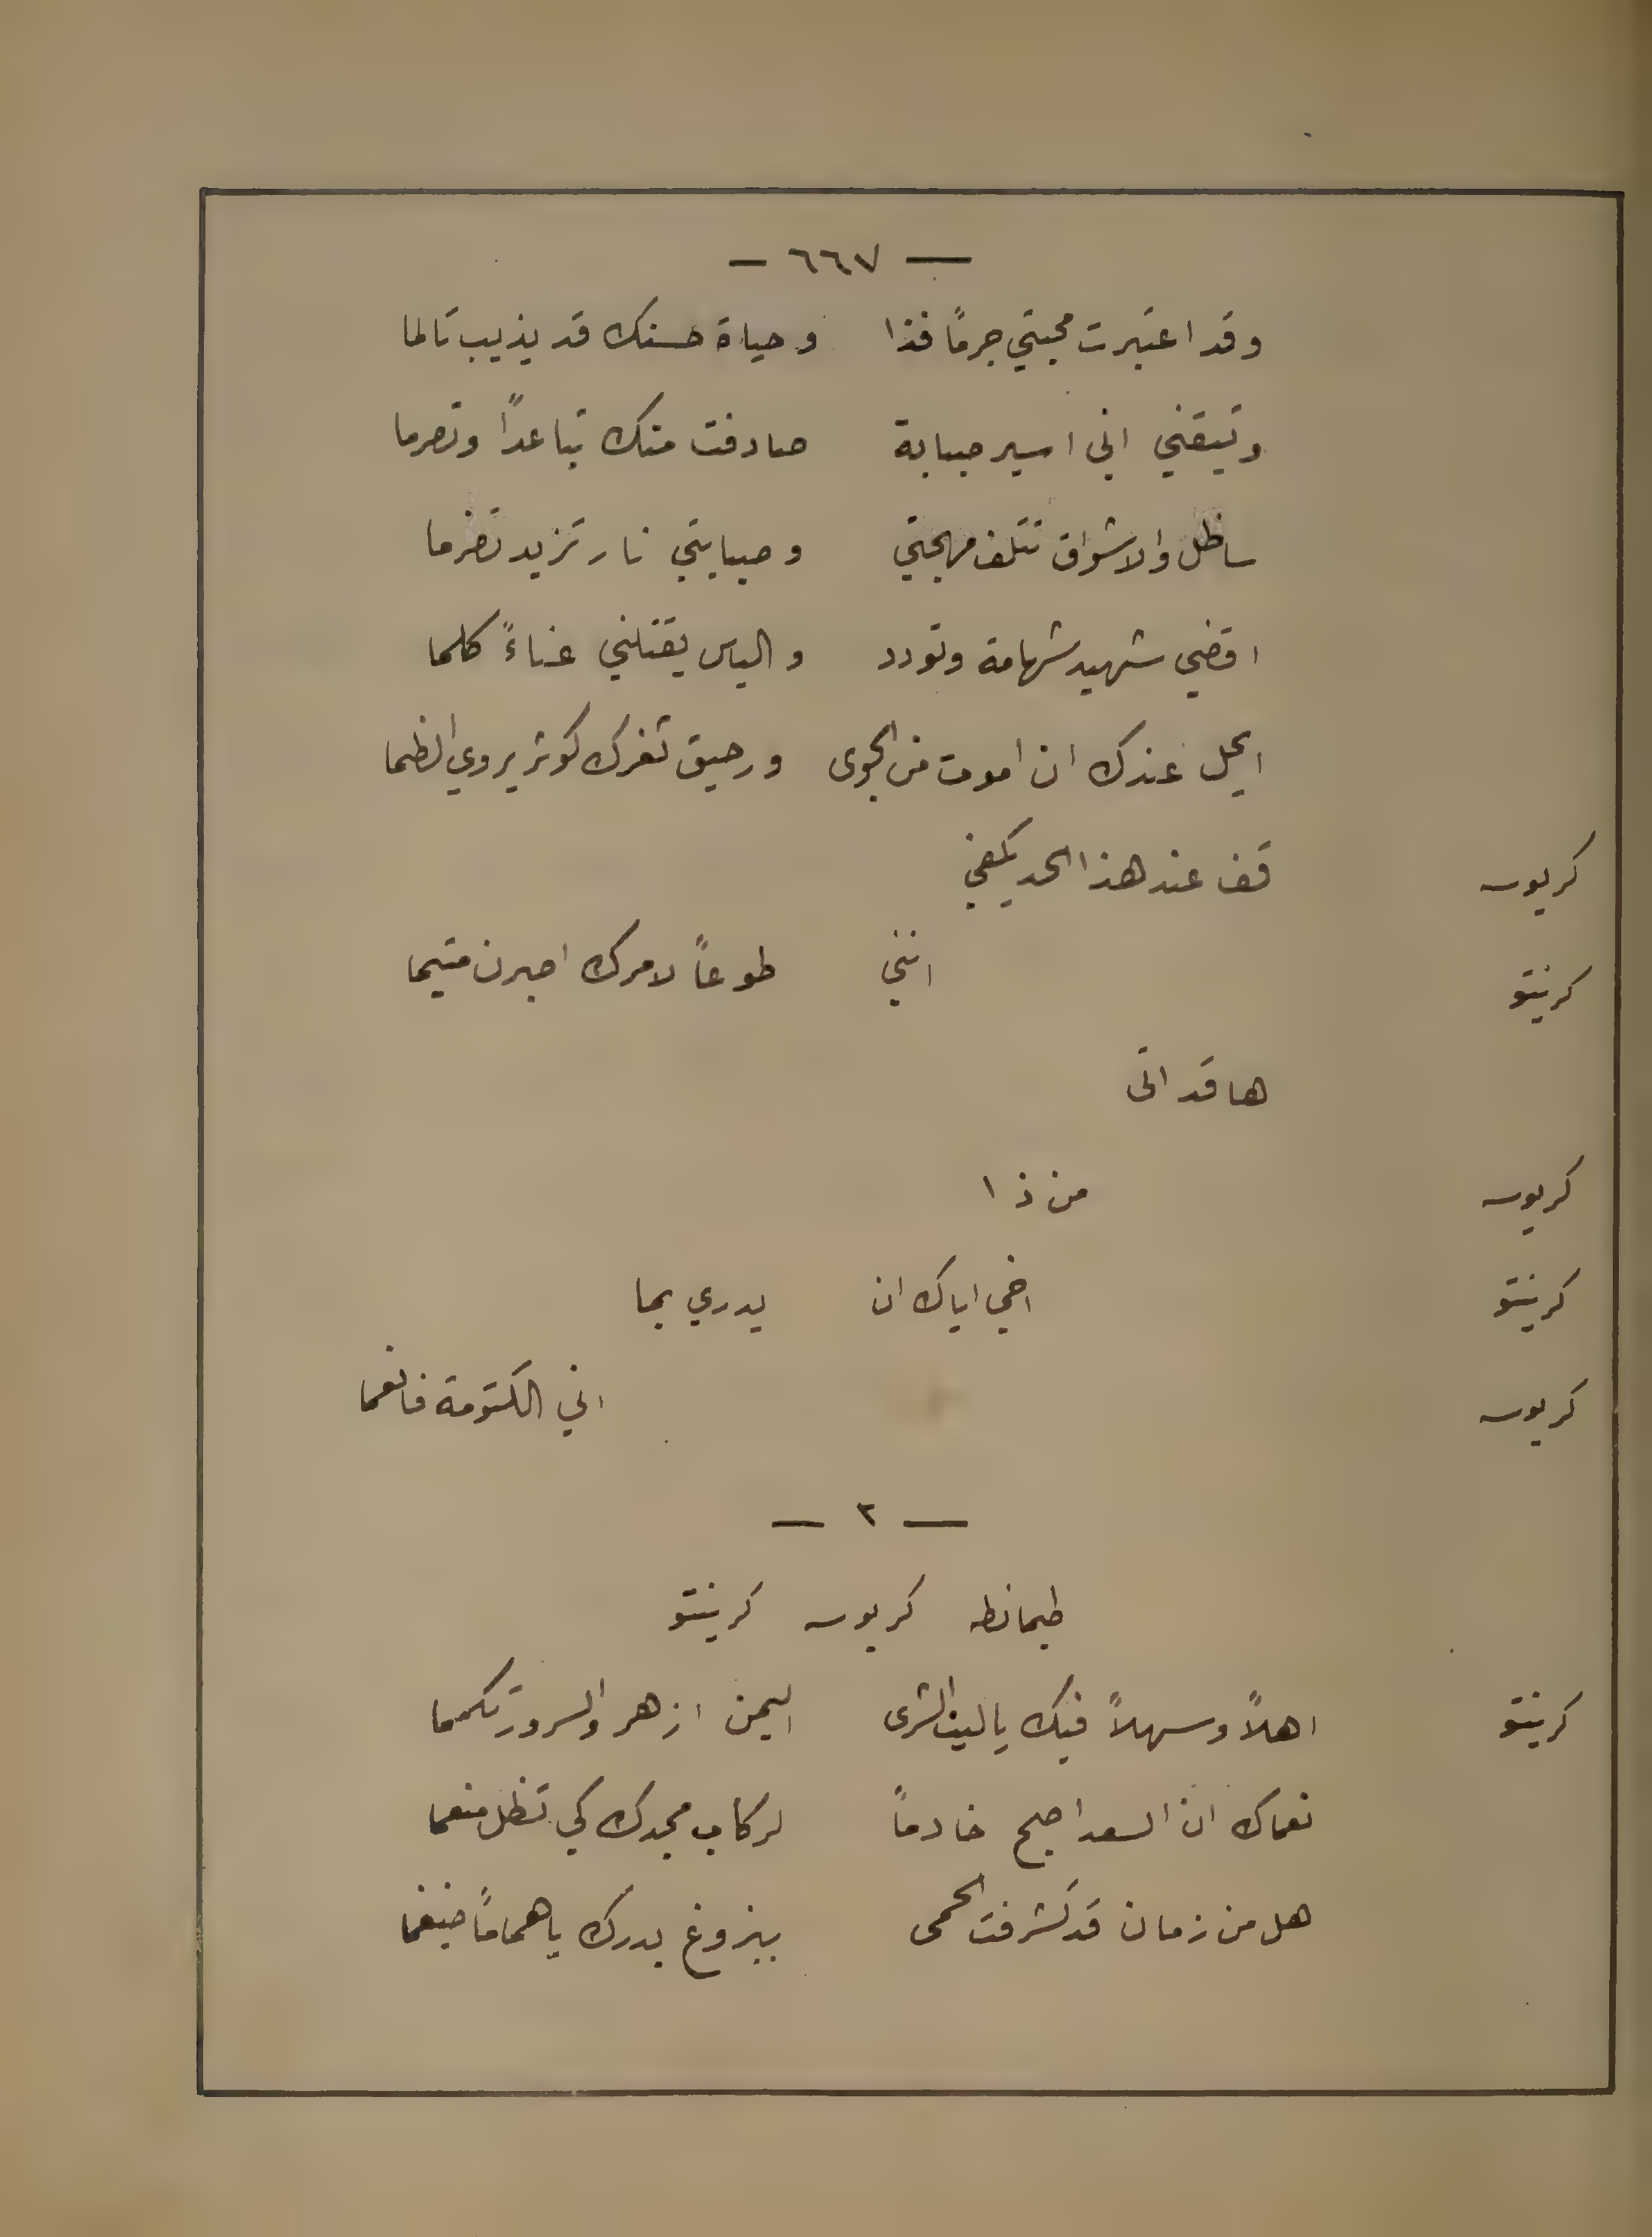 — ٦٦٧ —
وقد اعتبرت محبتي جرمًا فذا وحياة حسنك قد يذيب تالما
وتيقني اني اسير صبابة صادفت منك تباعدًا وتصرما
ساظل والاشواق تتلف مهجتي وصبابتي نار تزيد تضرما
اقضي شهيد شهامة وتودد والياس يقتلني عناءً كلما
ايحل عندك ان اموت من الجوى ورحيق ثغرك كوثر يروي الظما
كريوس قف عند هذا الحد يكفي
كرينتو انني طوعاً لامرك اصبرن متيما
ها قد اتى
كريوس من ذا
كرينتو اخي اياك ان يدري بما
كريوس اني الكتومة فانعما
— ٢ —
طيمانطه كريوس كرينتو
كرينتو اهلاً وسهلاً فيك ياليث الشرى اليمن ازهر والسرور تكمما
نعماك ان السعد اصبح خادماً لركاب مجدك كي تظل منعما
هل من زمان قد تشرفت الحمى ببزوغ بدرك ياهماماً ضيغما